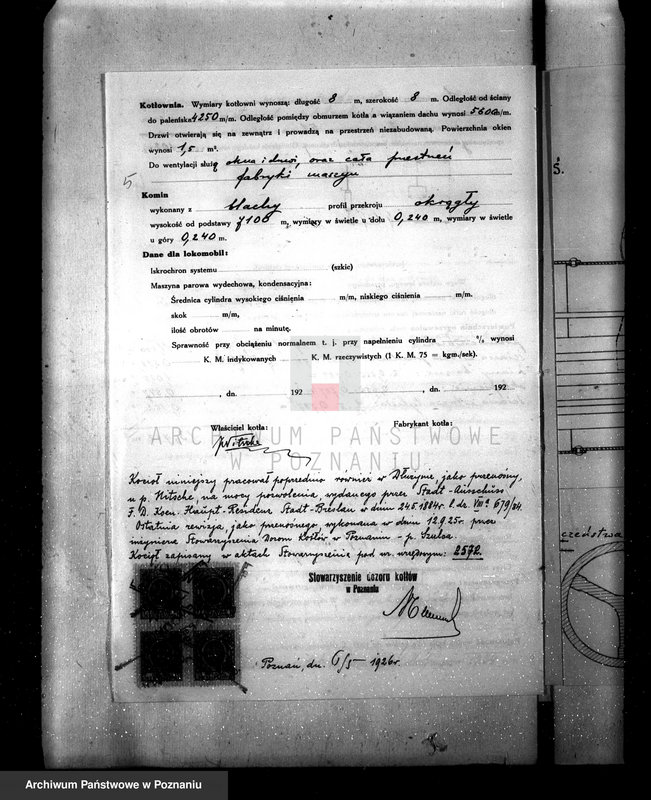 Kotłownia. Wymiary kotłowni wynoszą: długość 8 m, szerokość 8 m. Odległość od ściany
do paleniska 4250 m/m. Odległość pomiędzy obmurzem kotła a wiązaniem dachu wynosi 5600 m/m.
Drzwi otwierają się na zewnątrz i prowadzą na przestrzeń niezabudowaną. Powierzchnia okien
wynosi 1,5 m².
Do wentylacji służą okna i drzwi, oraz cała przestrzeń
fabryki maszyn
5
Komin
wykonany z blachy profil przekroju okrągły
wysokość od podstawy 7100 m, wymiary w świetle u dołu 0,240 m, wymiary w świetle
u góry 0,240 m.
Dane dla lokomobil:
Iskrochron systemu (szkic)
Maszyna parowa wydechowa, kondensacyjna:
Średnica cylindra wysokiego ciśnienia m/m, niskiego ciśnienia m/m.
skok m/m,
ilość obrotów na minutę.
Sprawność przy obciążeniu normalnem t. j. przy napełnieniu cylindra % wynosi
K. M. indykowanych K. M. rzeczywistych (1 K. M. 75 = kgm./sek).
, dn. 192 , dn. 192
Właściciel kotła: Fabrykant kotła:
Nitsche
ARCHIWUM PAŃSTWOWE
W POZNANIU
Kocioł niniejszy pracował poprzednio również w Dłużynie, jako przenośny,
u p. Nitsche, na mocy pozwolenia, wydanego przez Stadt-Ausschuss
Haupt- Stadt-Breslau w dniu 24.5.1884 l. dz. VIII 679/84.
Ostatnia rewizja, jako przenośnego, wykonana w dniu 12.9.25r. przez
inżyniera Stowarzyszenia Dozoru Kotłów w Poznaniu - p. Szulca.
Kocioł zapisany w aktach Stowarzyszenia pod nr. urzędowym: 2572.
Stowarzyszenie dozoru kotłów
w Poznaniu
Poznań, dn. 6/5 - 1926r.
Ś.
czeństwa
Archiwum Państwowe w Poznaniu